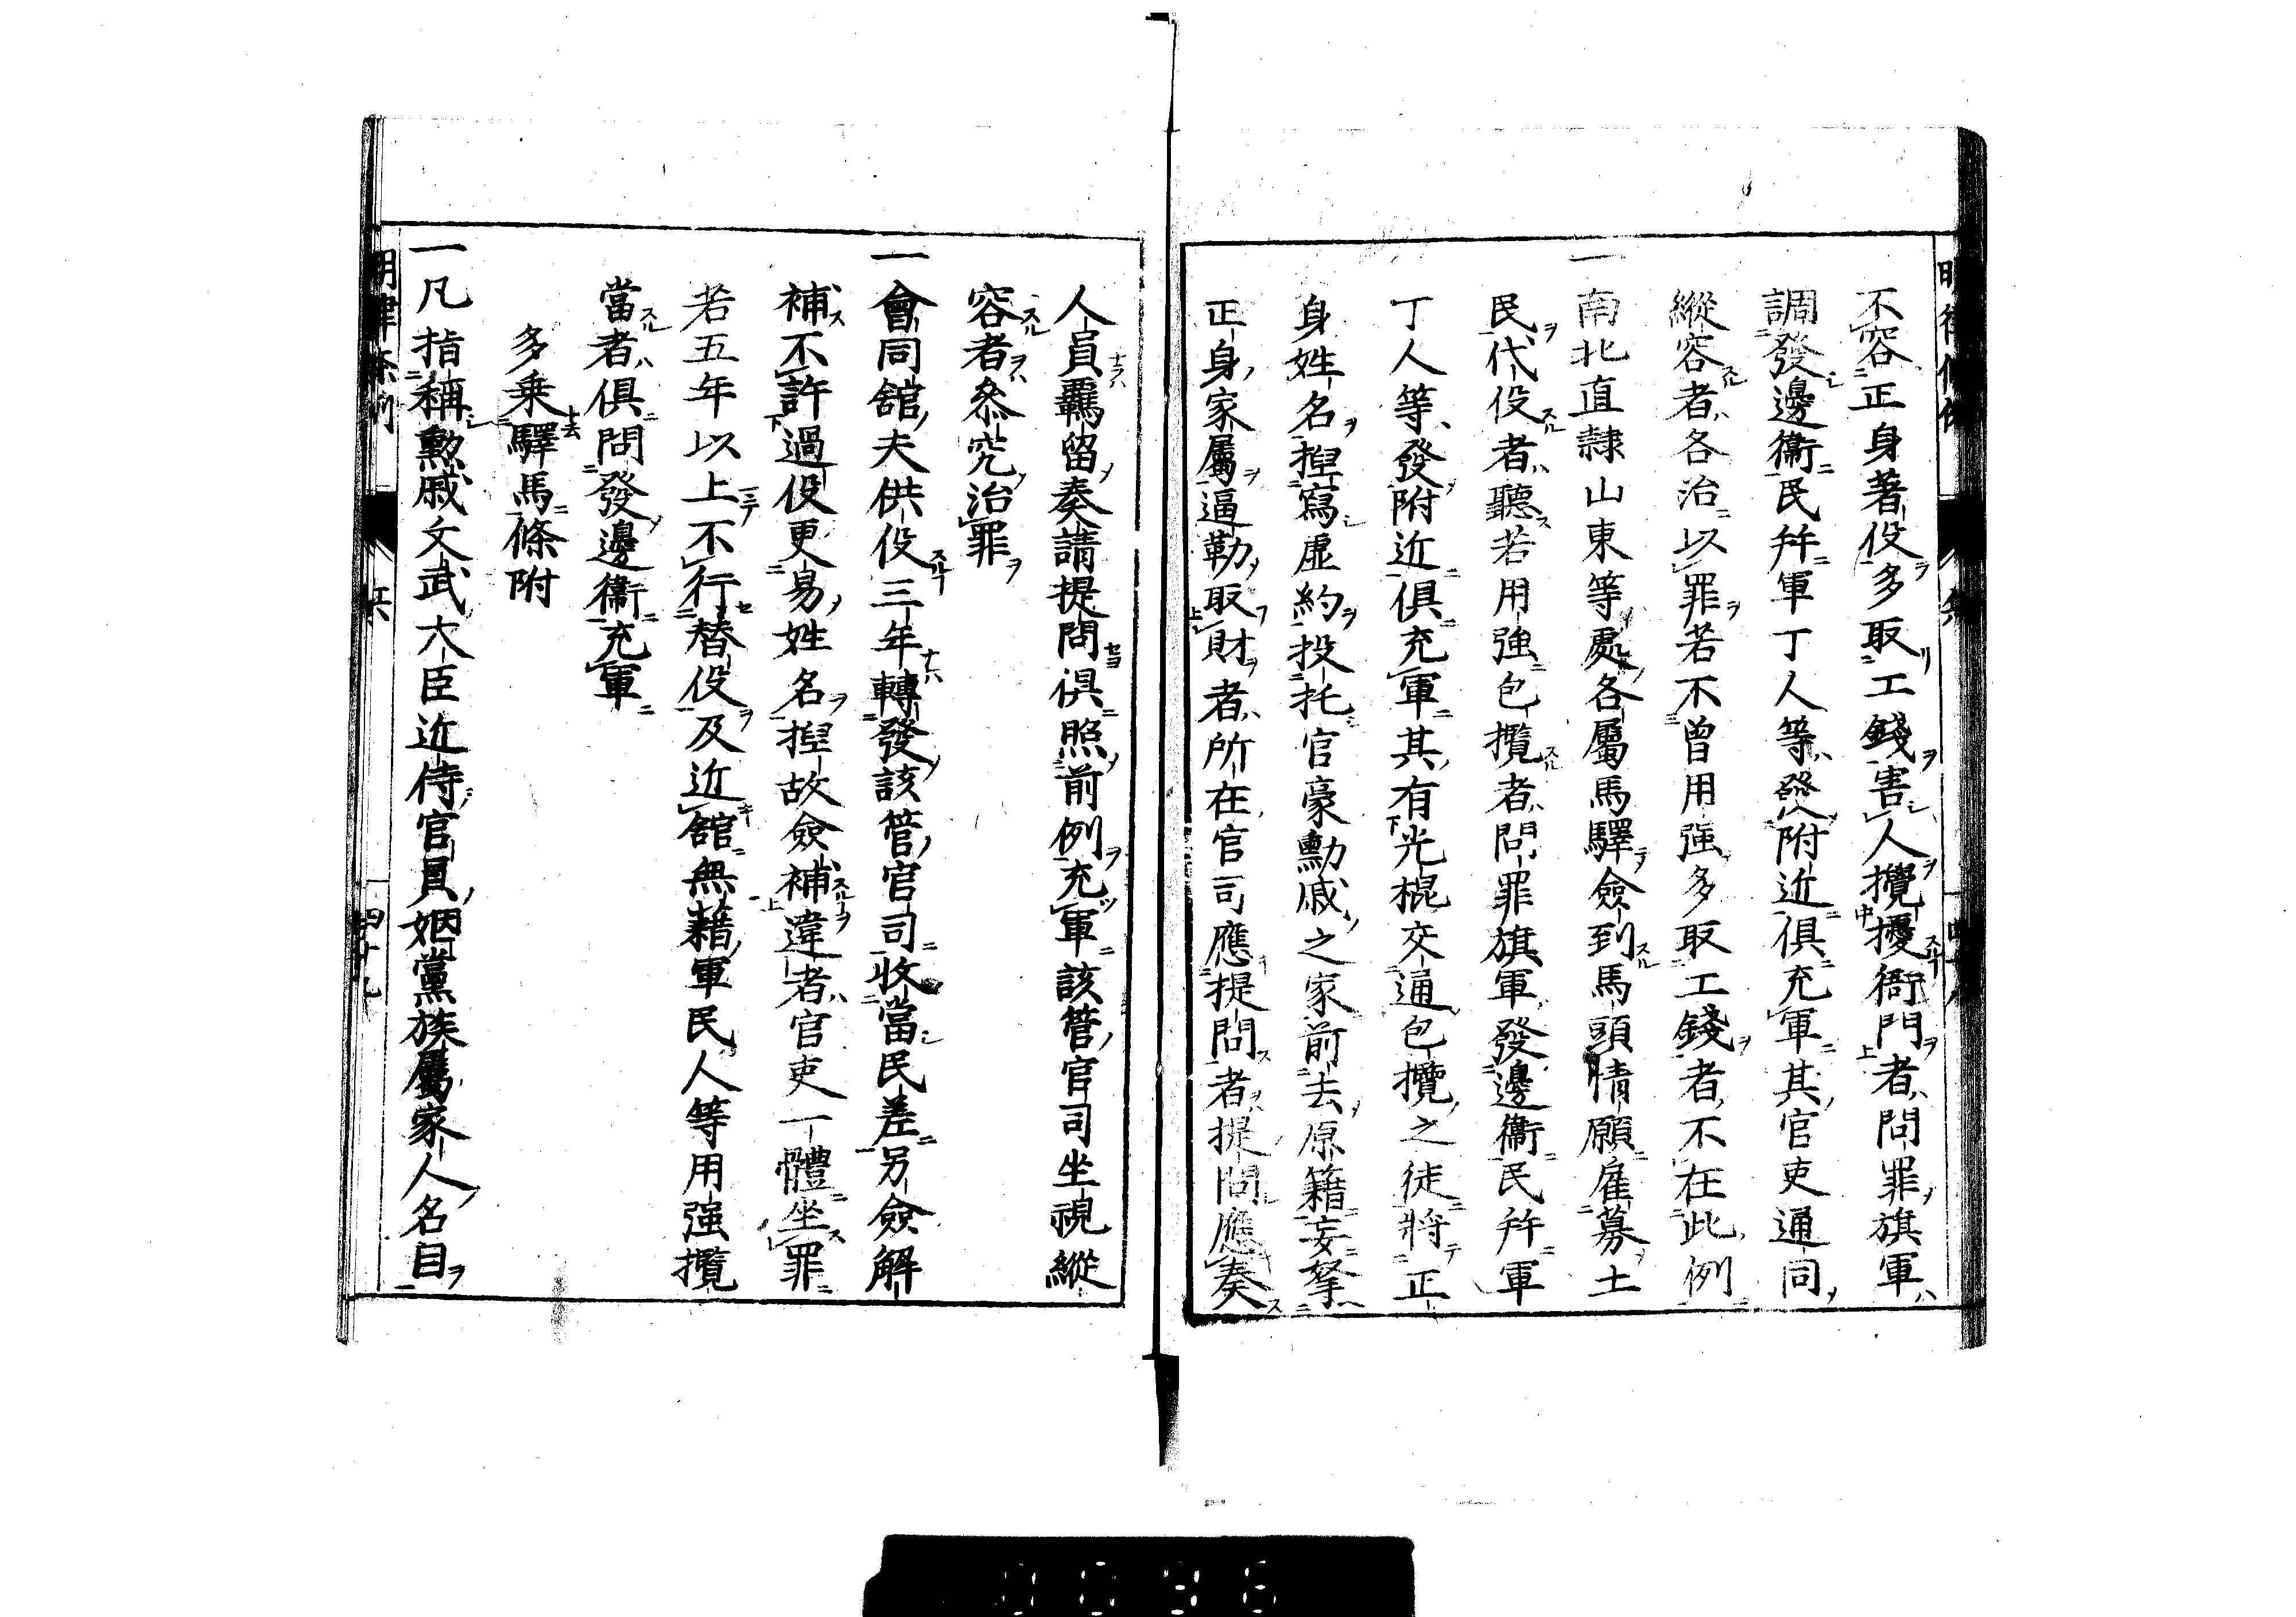 不容正身著役多取工錢害人攪擾衙門者問罪旗軍
調發邊衛民幷軍丁人等發附近俱充軍其官吏通同
縱容者各治以罪若不曾用强多取工錢者不在此例
一南北直隷山東等處各屬馬驛僉到馬頭情願雇募土
民代役者聽若用强包攬者問罪旗軍發邊衛民幷軍
丁人等發附近俱充軍其有光棍交通包攬之徒將正
身姓名揑寫虛約投托官豪勳戚之家前去原籍妄拏
正身家屬逼勒取財者所在官司應提問者提問應奏
人員羈留奏請提問俱照前例充軍該管官司坐視縱
容者叅究治罪
一會同舘夫供役三年轉發該管官司收當民差另僉解
補不許過役更易姓名揑故僉補違者官吏一體坐罪
若五年以上不行替役及近舘無藉軍民人等用强攬
當者俱問發邊衛充軍
多乗驛馬條附
一凡指稱勲戚文武大臣近侍官員姻黨族屬家人名目
明律條例
四十九